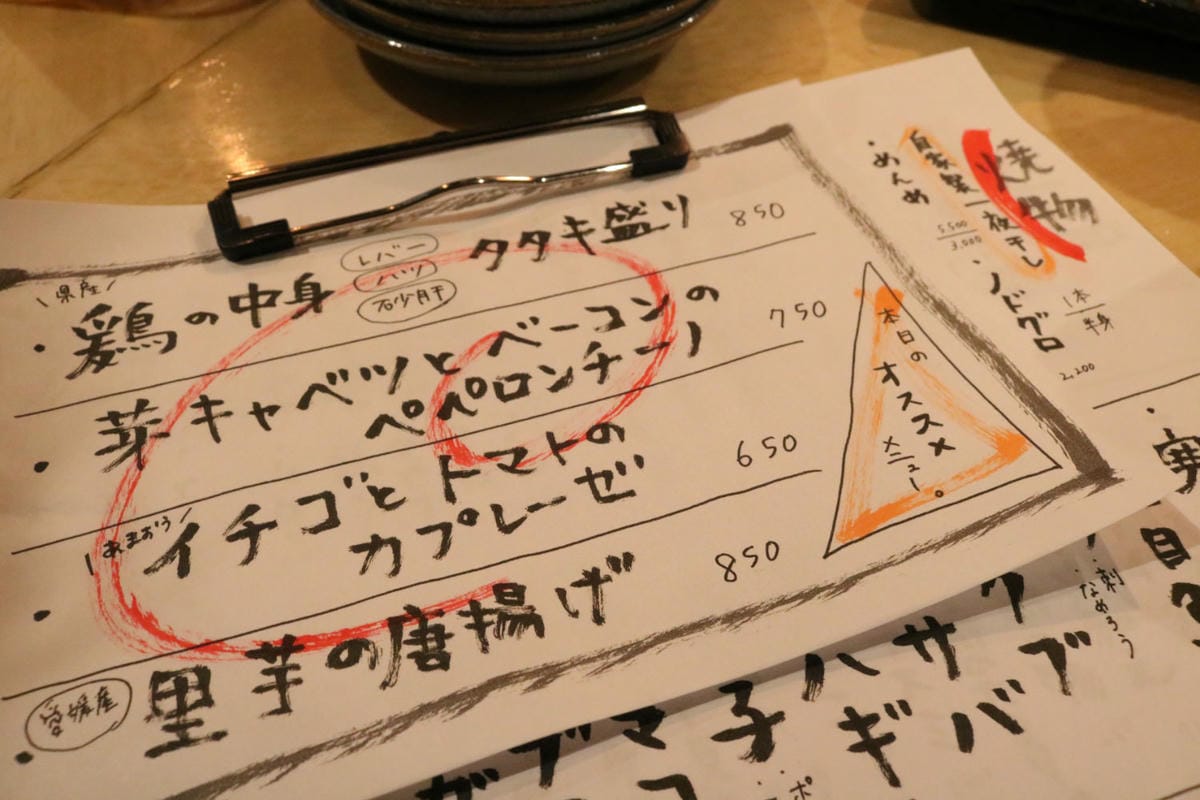 ＼県産／
・鶏の中身 レバー ハツ 砂肝 タタキ盛り 850
・芽キャベツとベーコンの
ペペロンチーノ 750
＼あまおう／
・イチゴとトマトの
カプレーゼ 650
・愛媛産 里芋の唐揚げ 850
本日の
オススメ
メニュー。
焼物
自家製一夜干し
・めんめ
5,500
3,000
・ノドグロ
1本
半身
2,200
刺
なめろう
ハサク
ギバブ